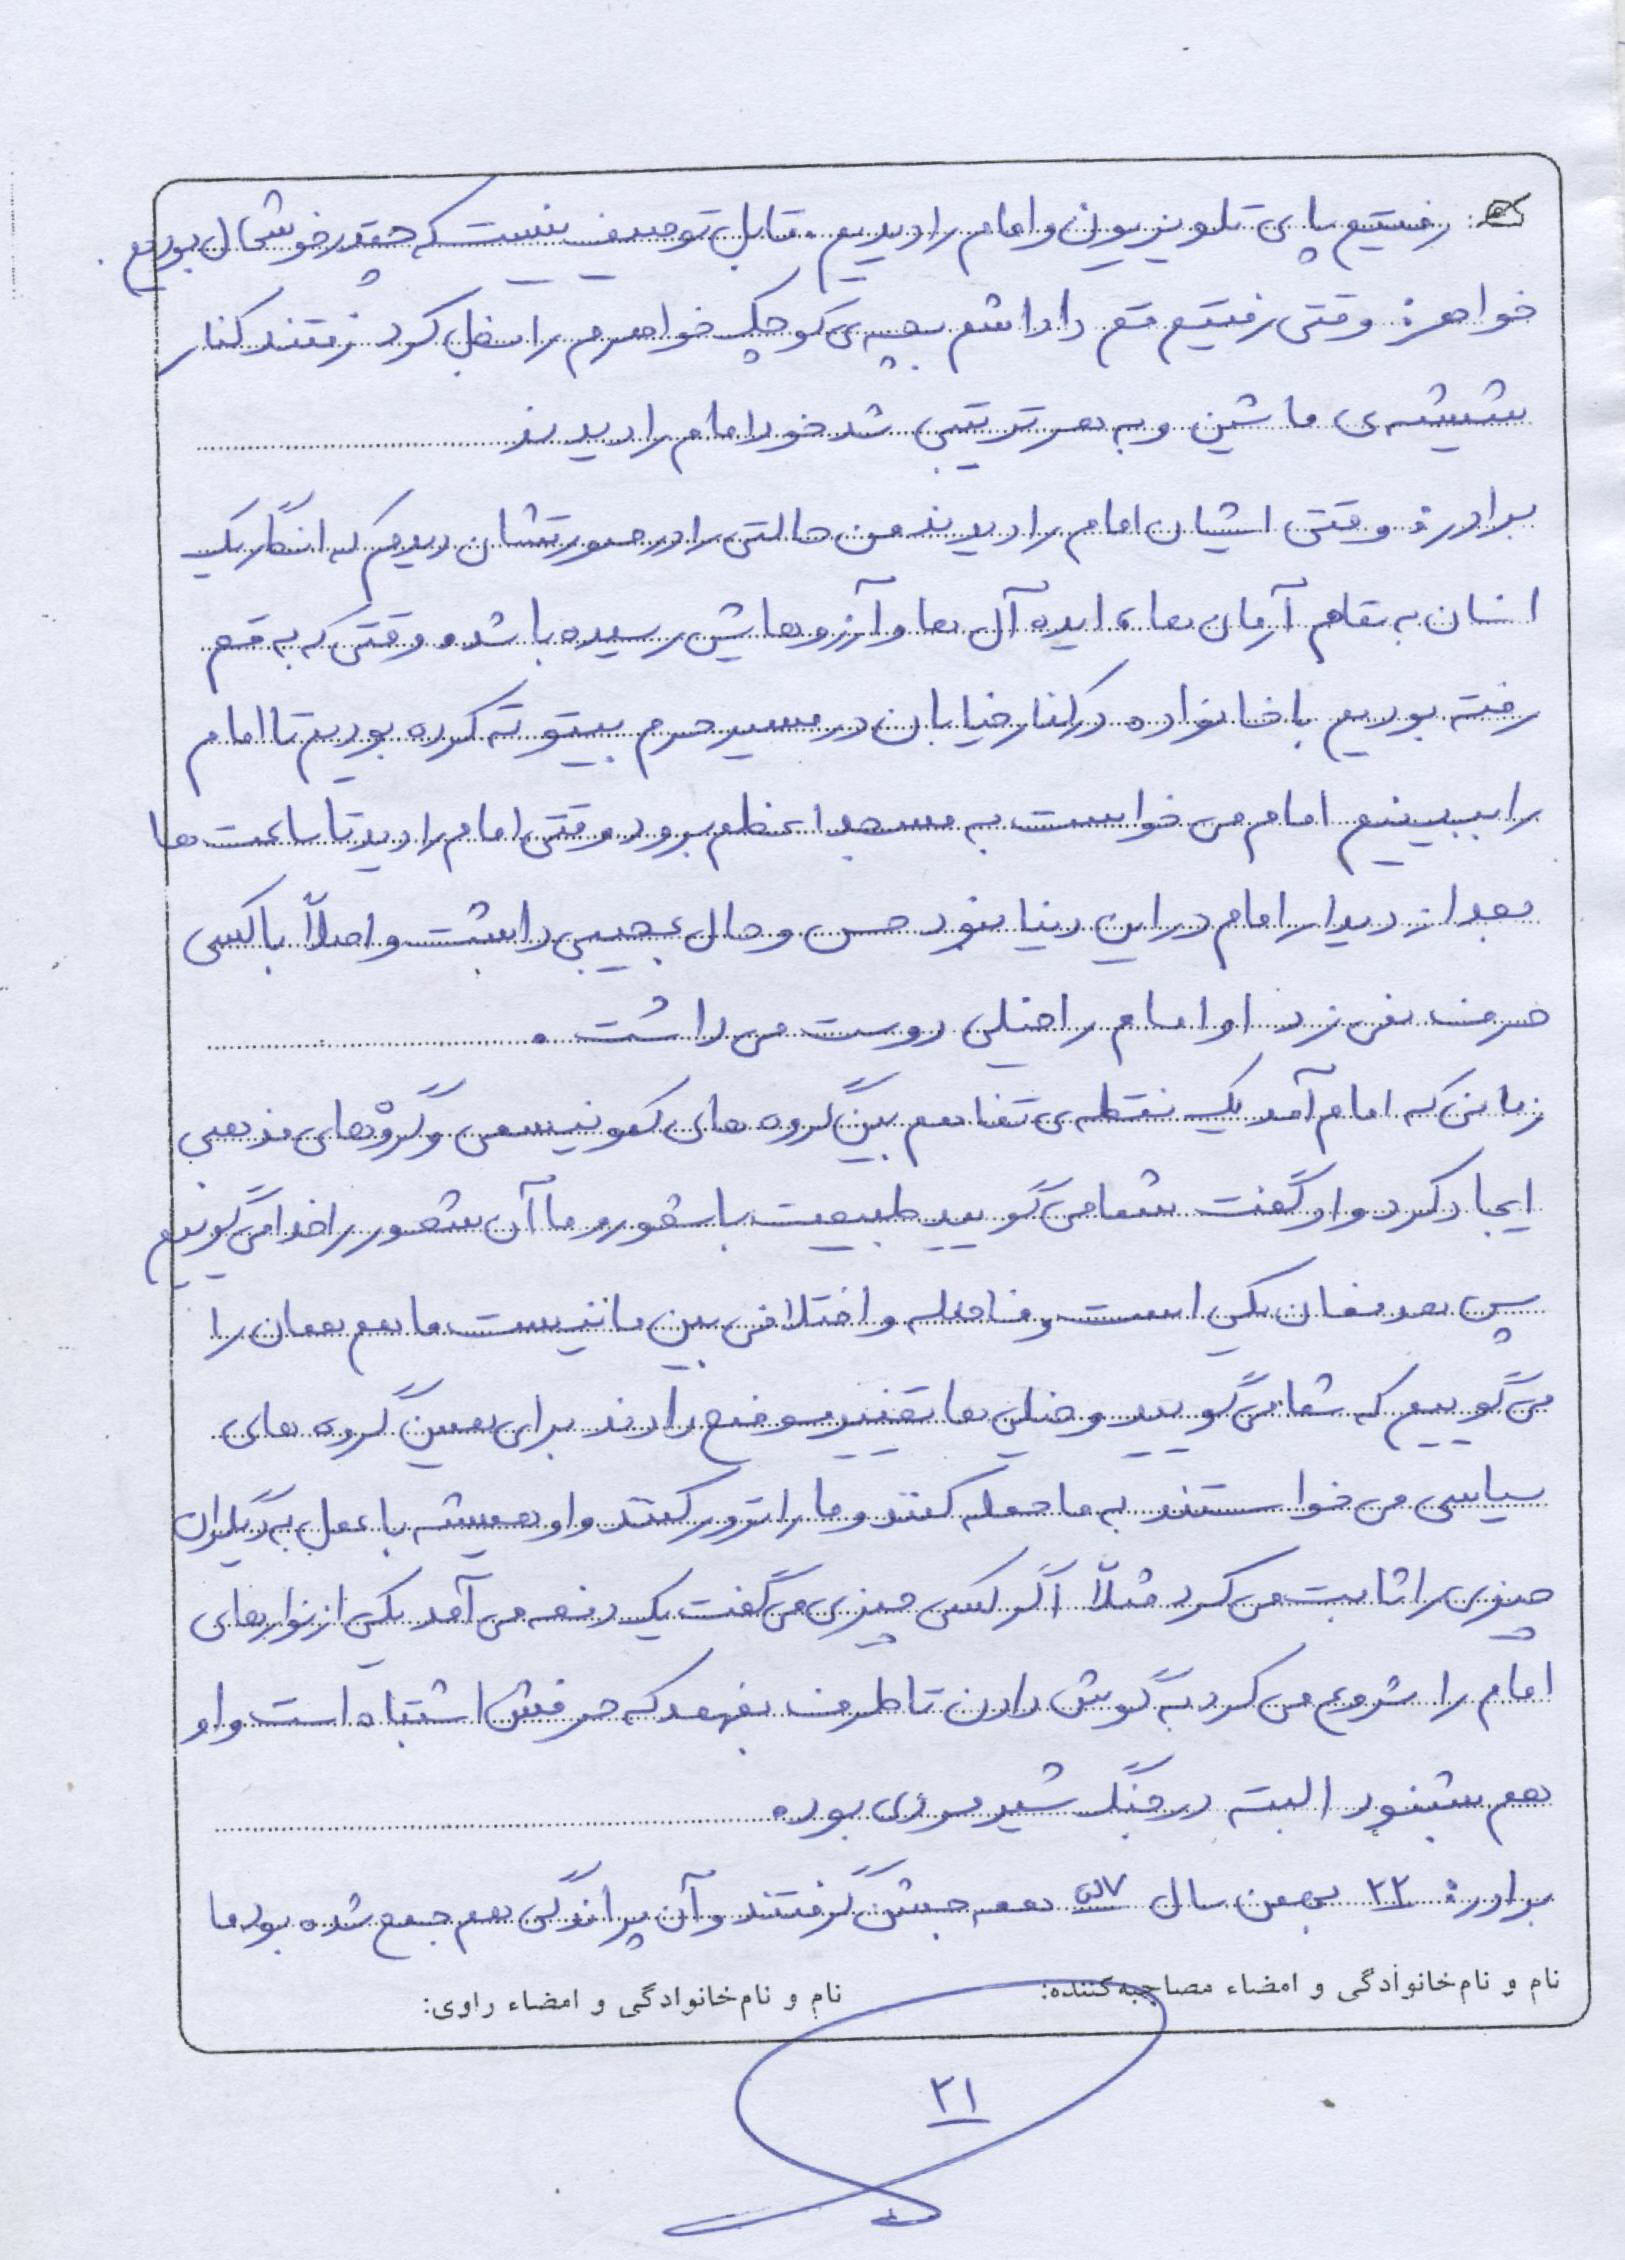 رفتیم پای تلویزیون و امام را دیدیم. قابل توصیف نیست که چقدر خوشحال بودیم.
خواهر: وقتی رفتیم قم داداشم بچه‌ی کوچک خواهرم را بغل کرد رفتند کنار
شیشه‌ی ماشین و به هر ترتیبی شد خود امام را دیدند
برادر: وقتی ایشان امام را دیدند من حالتی را در صورتشان دیدم که انگار یک
انسان به تمام آرمان ها، ایده آل ها و آرزوهایش رسیده باشد. وقتی که به قم
رفته بودیم با خانواده در کنار خیابان در مسیر حرم بیتوته کرده بودیم تا امام
را ببینیم امام می خواست به مسجد اعظم برود وقتی امام را دید تا ساعت ها
بعد از دیدار امام در این دنیا نبود حس و حال عجیبی داشت و اصلاً با کسی
حرف نمی زد او امام را خیلی دوست می داشت.
زمانی که امام آمد یک نقطه‌ی تفاهم بین گروه های کمونیسمی و گروههای مذهبی
ایجاد کرد و او گفت شما می گویید طبیعت با شعور و ما آن شعور را خدا می گوییم
پس هدفمان یکی است و فاصله و اختلافی بین ما نیست ما هم همان را
می گوییم که شما می گویید و خیلی ها تغییر موضع دادند برای همین گروه های
سیاسی می خواستند به ما حمله کنند و ما را ترور کنند و او همیشه با عمل به دیگران
چیزی را ثابت می کرد مثلاً اگر کسی چیزی می گفت یک دفعه می آمد یکی از نوارهای
امام را شروع می کرد به گوش دادن تا طرف بفهمد که حرفش اشتباه است و او
هم بشنود البته در جنگ شیر مردی بوده
برادر: ۲۲ بهمن سال همه جشن گرفتند و آن پراندگی هم جمع شده بود ما
نام و نام‌خانوادگی و امضاء مصاحبه‌کننده: نام و نام‌خانوادگی و امضاء راوی:
۲۱